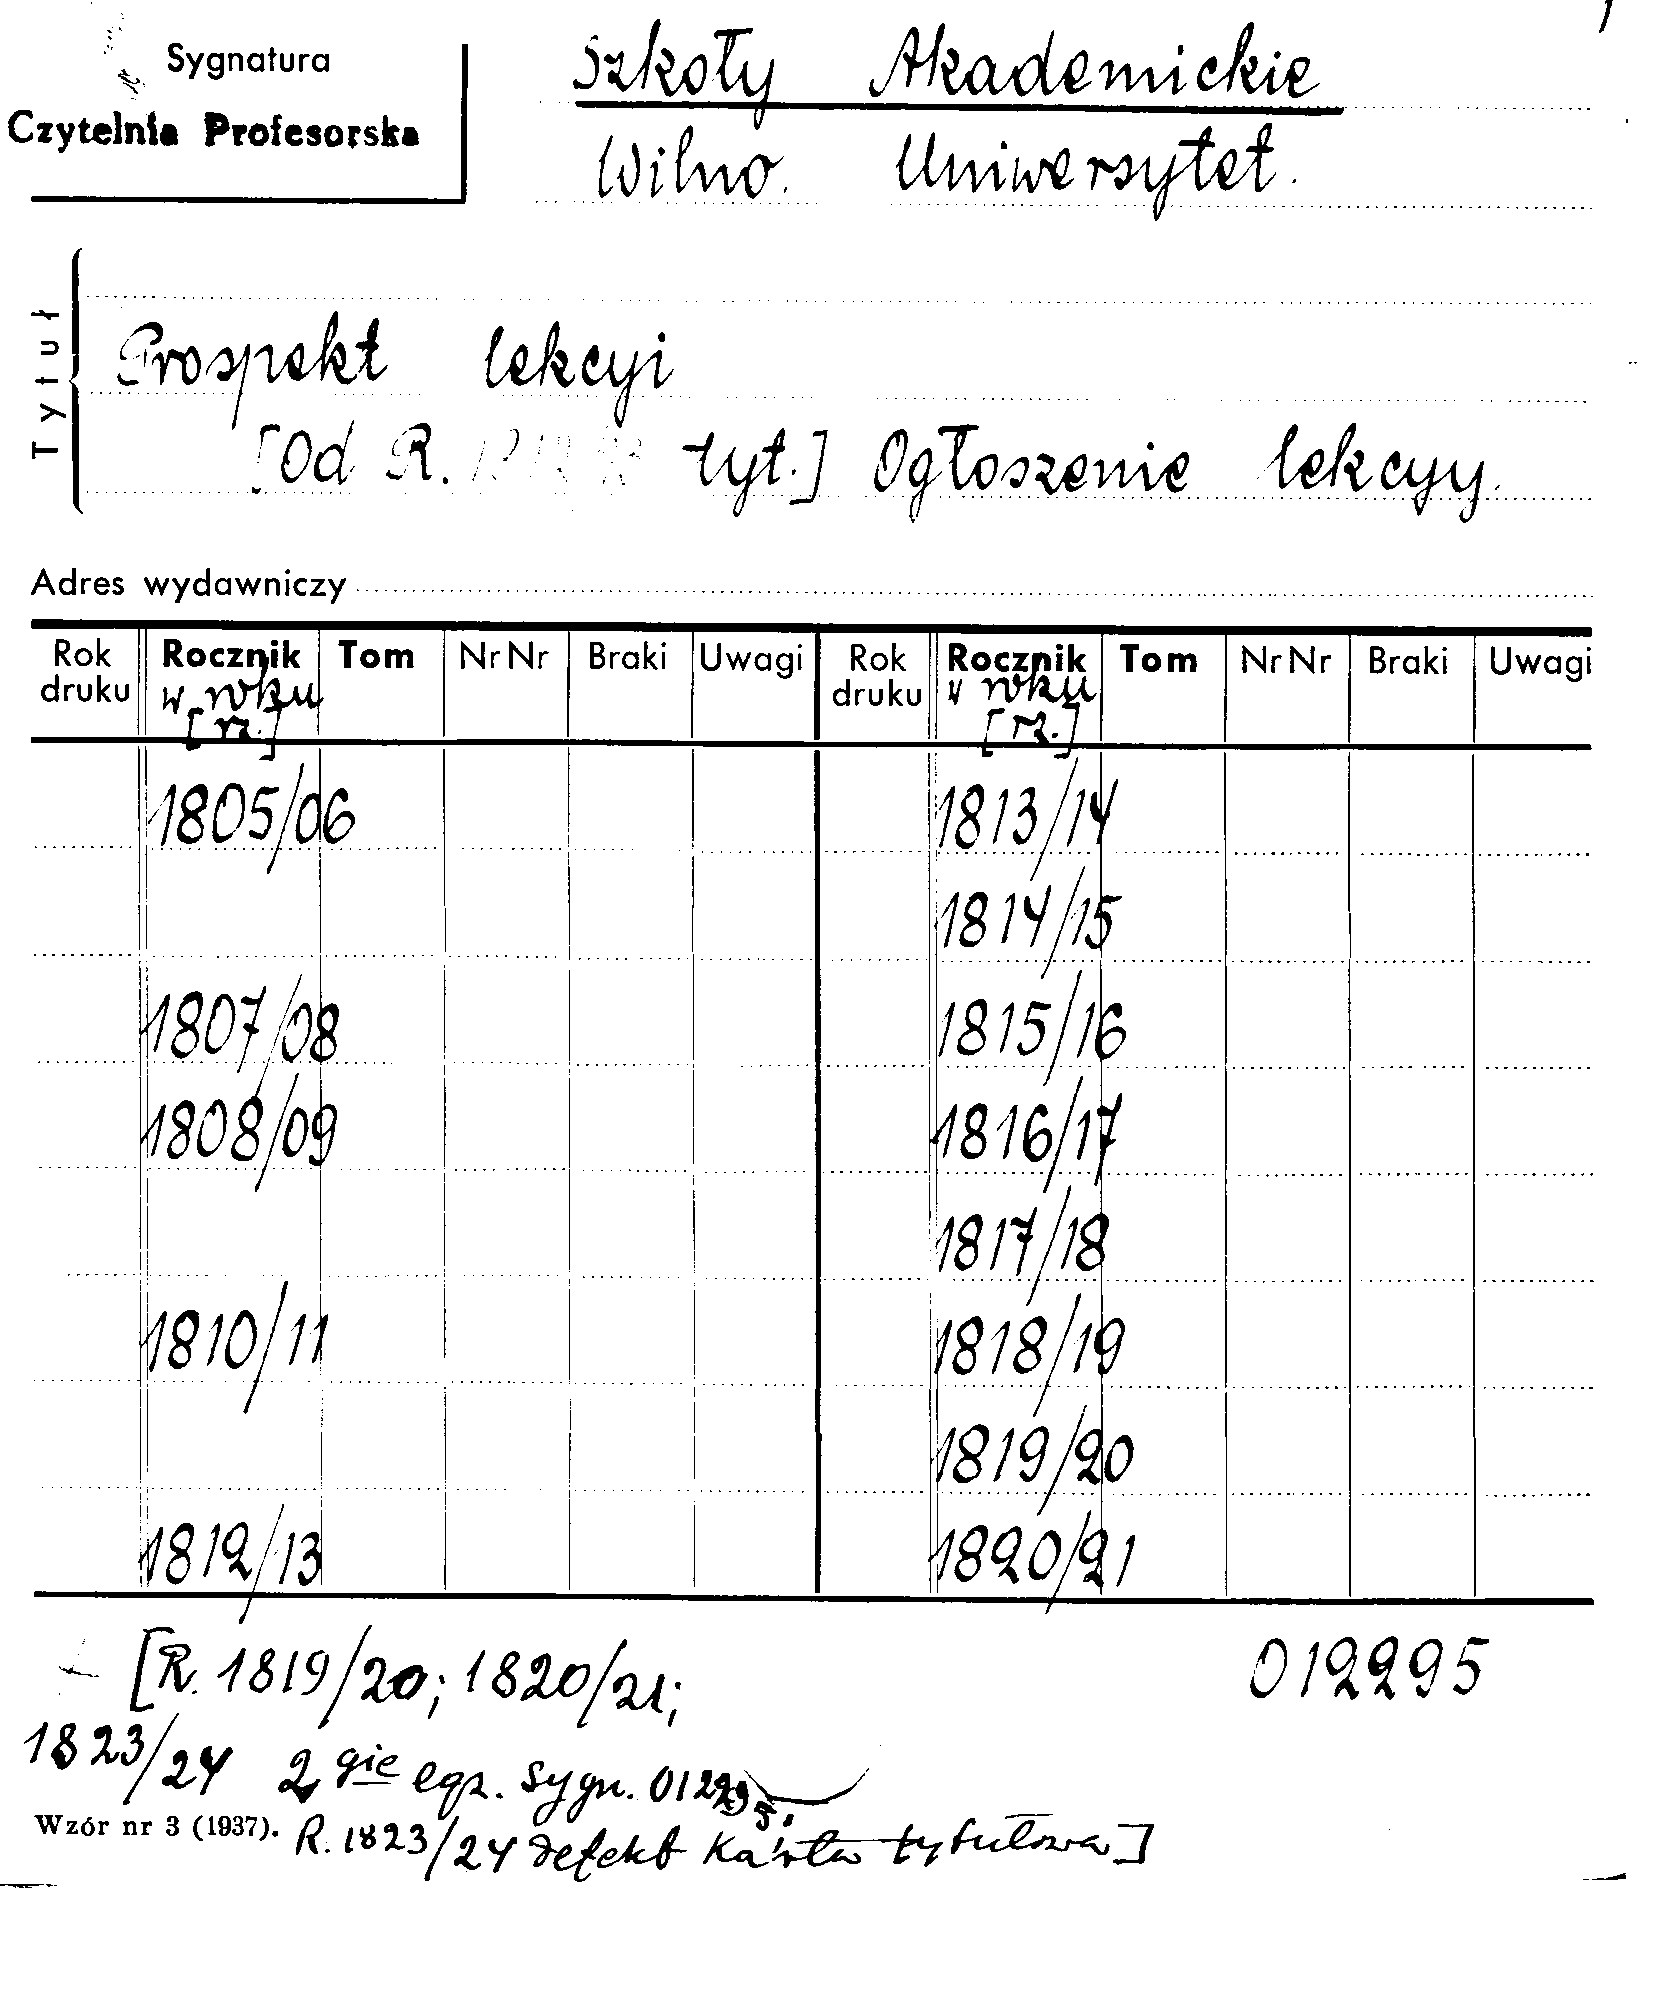 Sygnatura
Czytelnia Profesorska
Szkoły Akademickie
Wilno. Uniwersytet.
Tytuł
Prospekt lekcyi
[Od R. tyt.] Ogłoszenie lekcyy.
Adres wydawniczy
Rok druku Rocznik w roku [rz.] Tom Nr Nr Braki Uwagi Rok druku Rocznik w roku [rz.] Tom Nr Nr Braki Uwagi
1805/06 1813/14
1814/15
1807/08 1815/16
1808/09 1816/17
1817/18
1810/11 1818/19
1819/20
1812/13 1820/21
012295
[R. 1819/20; 1820/21;
1823/24 2gie egz. sygn. 012295.
Wzór nr 3 (1937).
R. 1823/24 defekt karta tytułowa]